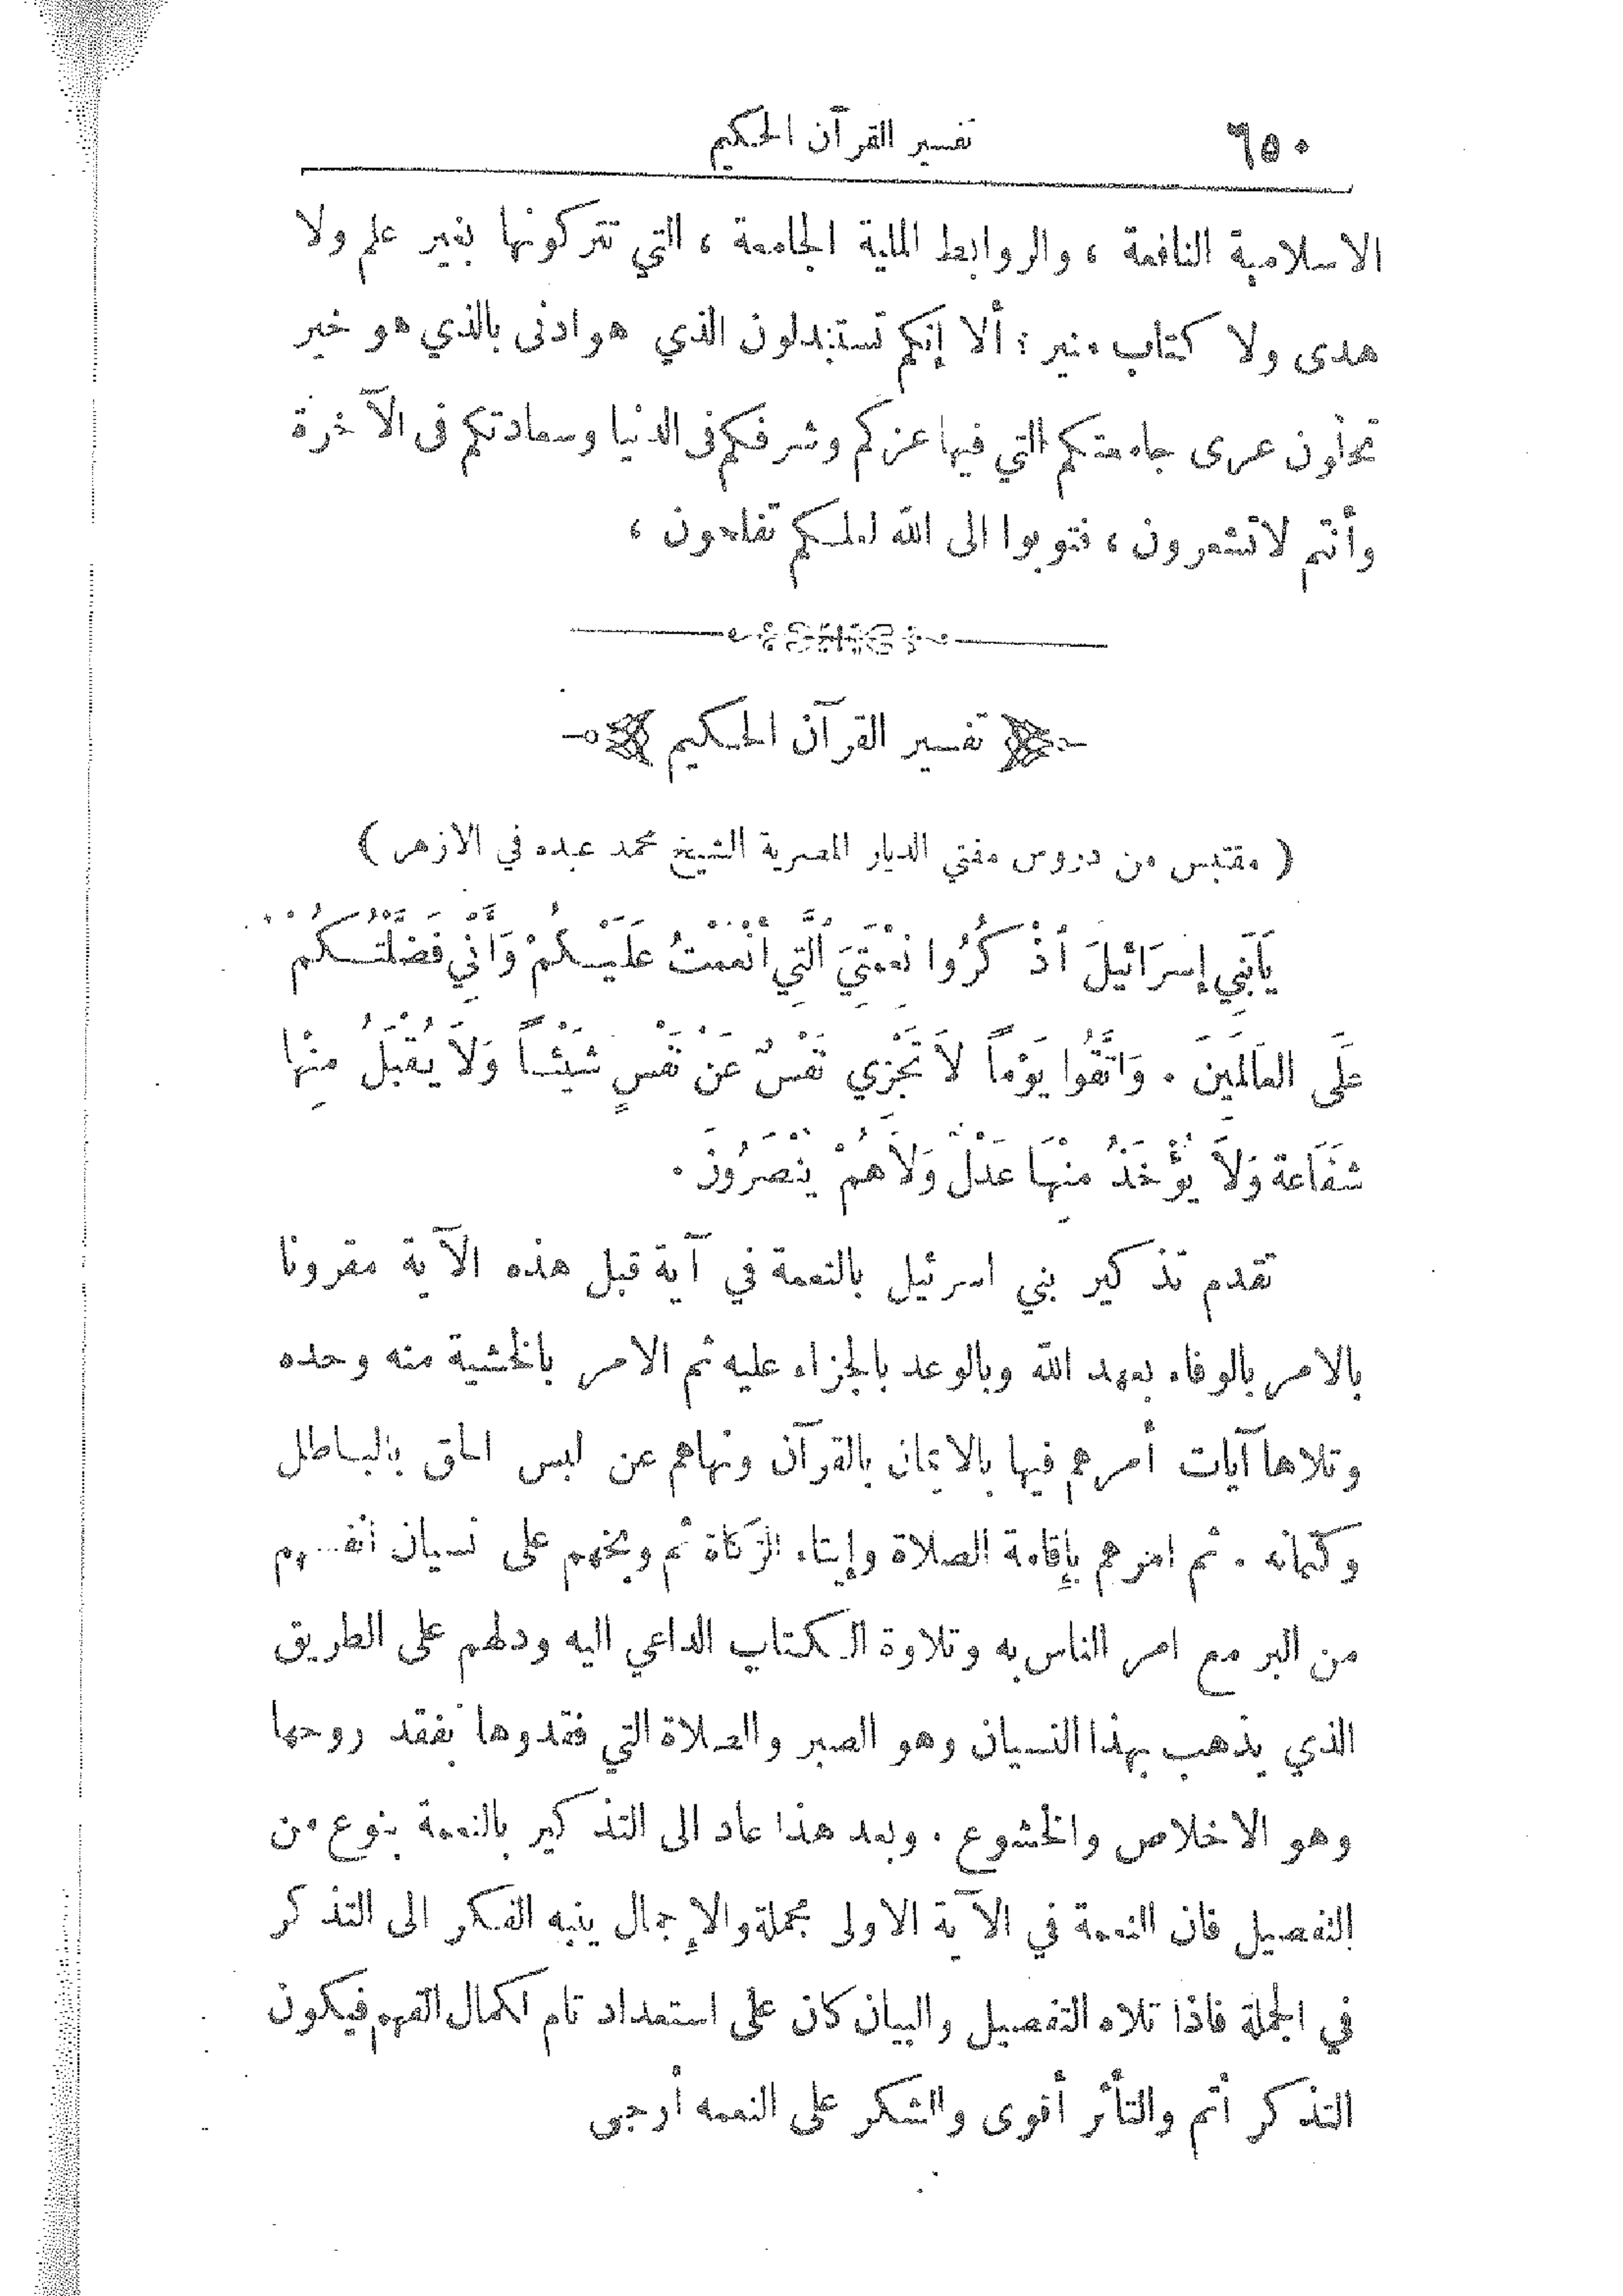 ٦٥٠ تفسير القرآن الحكيم
الاسلامية النافعة ، والروابط الملية الجامعة ، التي تتركونها بغير علم ولا
هدى ولا كتاب منير ؛ ألا إنكم تستبدلون الذي هو ادنى بالذي هو خير
تحلون عرى جامعتكم التي فيها عزكم وشرفكم فى الدنيا وسعادتكم فى الآخرة
وأنتم لا تشعرون ، فتوبوا الى الله لعلكم تفلحون ،
تفسير القرآن الحكيم
( مقتبس من دروس مفتي الديار المصرية الشيخ محمد عبده في الازهر )
يَابَنِي إِسرَائِيلَ اُذْكُرُوا نِعْمَتِيَ اُلَّتِي أَنْعَمْتُ عَلَيْكُمْ وَأَنِّي فَضَّلْتُكُمْ
عَلَى العَالَمِينَ . وَاتَّقُوا يَوْماً لاَ تَجْزِي نَفْسٌ عَنْ نَفْسٍ شَيْئاً وَلاَ يُقْبَلُ مِنْها
شَفَاعة وَلاَ يُؤْخَذُ مِنْهَا عَدْلٌ وَلاَ هُمْ يُنْصَرُونَ .
تقدم تذكير بني اسرئيل بالنعمة في آية قبل هذه الآية مقرونا
بالامر بالوفاء بعهد الله وبالوعد بالجزاء عليه ثم الامر بالخشية منه وحده
وتلاها آيات أمرهم فيها بالايمان بالقرآن ونهاهم عن لبس الحق بالباطل
وكتمانه . ثم امرهم بإقامة الصلاة وإيتاء الزكاة ثم وبخهم على نسيان أنفسهم
من البر مع امر الناس به وتلاوة الكتاب الداعي اليه ودلهم على الطريق
الذي يذهب بهذا النسيان وهو الصبر والصلاة التي فقدوها بفقد روحها
وهو الاخلاص والخشوع . وبعد هذا عاد الى التذكير بالنعمة بنوع من
التفصيل فان النعمة في الآية الاولى مجملة والإجمال ينبه الفكر الى التذكر
في الجملة فاذا تلاه التفصيل والبيان كان على استعداد تام لكمال الفهم فيكون
التذكر أتم والتأثر أقوى والشكر على النعمه أرجى